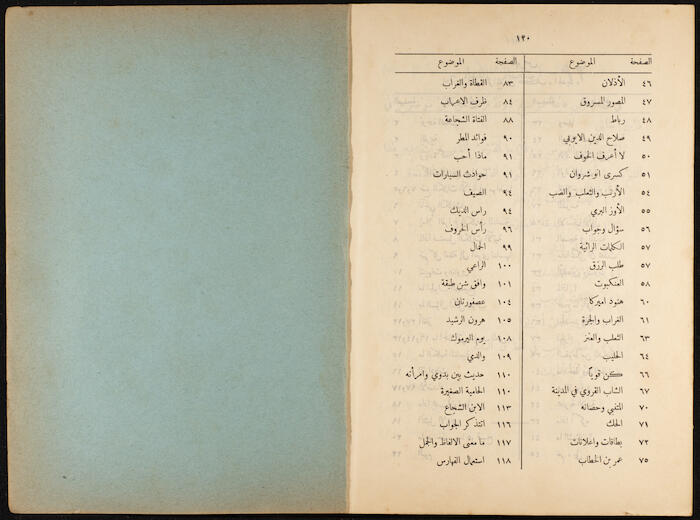 ١٢٠
الصفحة الموضوع
٤٦ الأذلان
٤٧ المصور المسروق
٤٨ رباط
٤٩ صلاح الدين الايوبي
٥٠ لا أعرف الخوف
٥١ كسرى انو شروان
٥٤ الأرنب والثعلب والضب
٥٥ الأوز البري
٥٦ سؤال وجواب
٥٧ الكلمات الرائية
٥٧ طلب الرزق
٥٨ العنكبوت
٦٠ هنود اميركا
٦١ الغراب والجرة
٦٣ الثعلب والعنز
٦٤ الحليب
٦٦ كن قوياً
٦٧ الشاب القروي في المدينة
٧٠ المتنبي وحصانه
٧١ الملك
٧٢ بطاقات واعلانات
٧٥ عمر بن الخطاب
الصفحة الموضوع
٨٣ القطاة والغراب
٨٤ ظرف الاعراب
٨٨ الفتاة الشجاعة
٩٠ فوائد المطر
٩١ ماذا أحب
٩١ حوادث السيارات
٩٤ الصيف
٩٤ راس الديك
٩٦ رأس الخروف
٩٩ الحمال
١٠٠ الراعي
١٠١ وافق شن طبقة
١٠٤ عصفورتان
١٠٥ هرون الرشيد
١٠٨ يوم اليرموك
١٠٩ والدي
١١٠ حديث بين بدوي وامرأته
١١٠ الحامية الصغيرة
١١٣ الابن الشجاع
١١٦ انتذكر الجواب
١١٧ ما معنى الالفاظ والجمل
١١٨ استعمال الفهارس